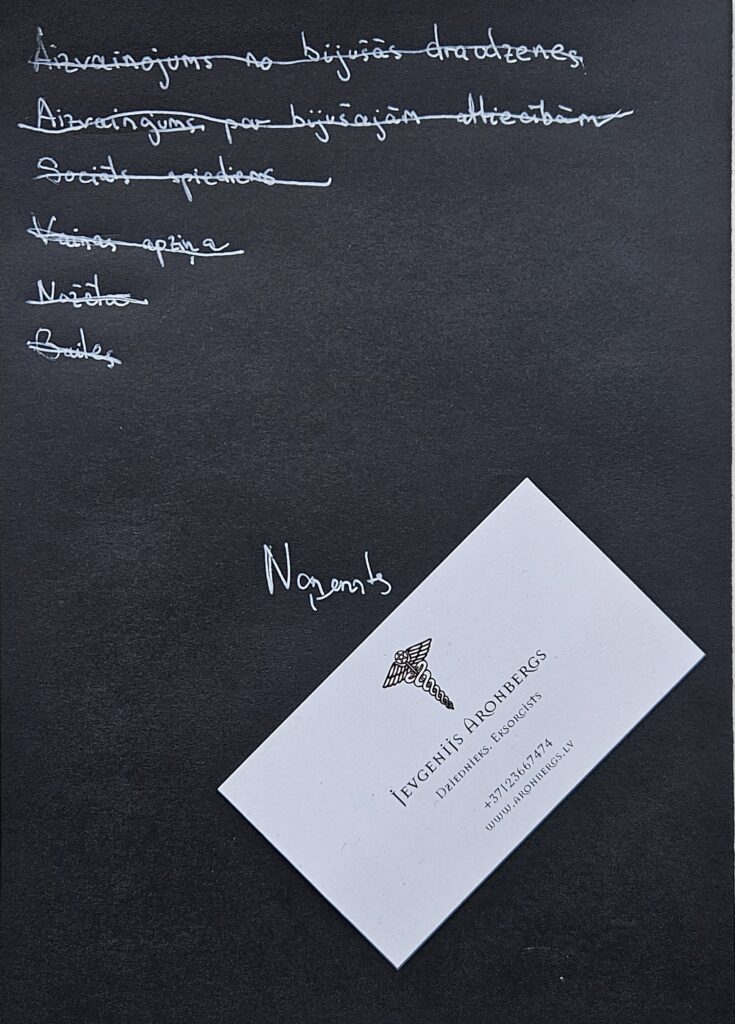 Aizvainojums no bijušās draudzenes
Aizvaingums par bijušajām attiecībām
Sociāls spiediens
Vainas apziņa
Nožēla
Bailes
Noņemts
Jevgenijs Aronbergs
Dziednieks. Eksorcists
+37123667474
www.aronbergs.lv